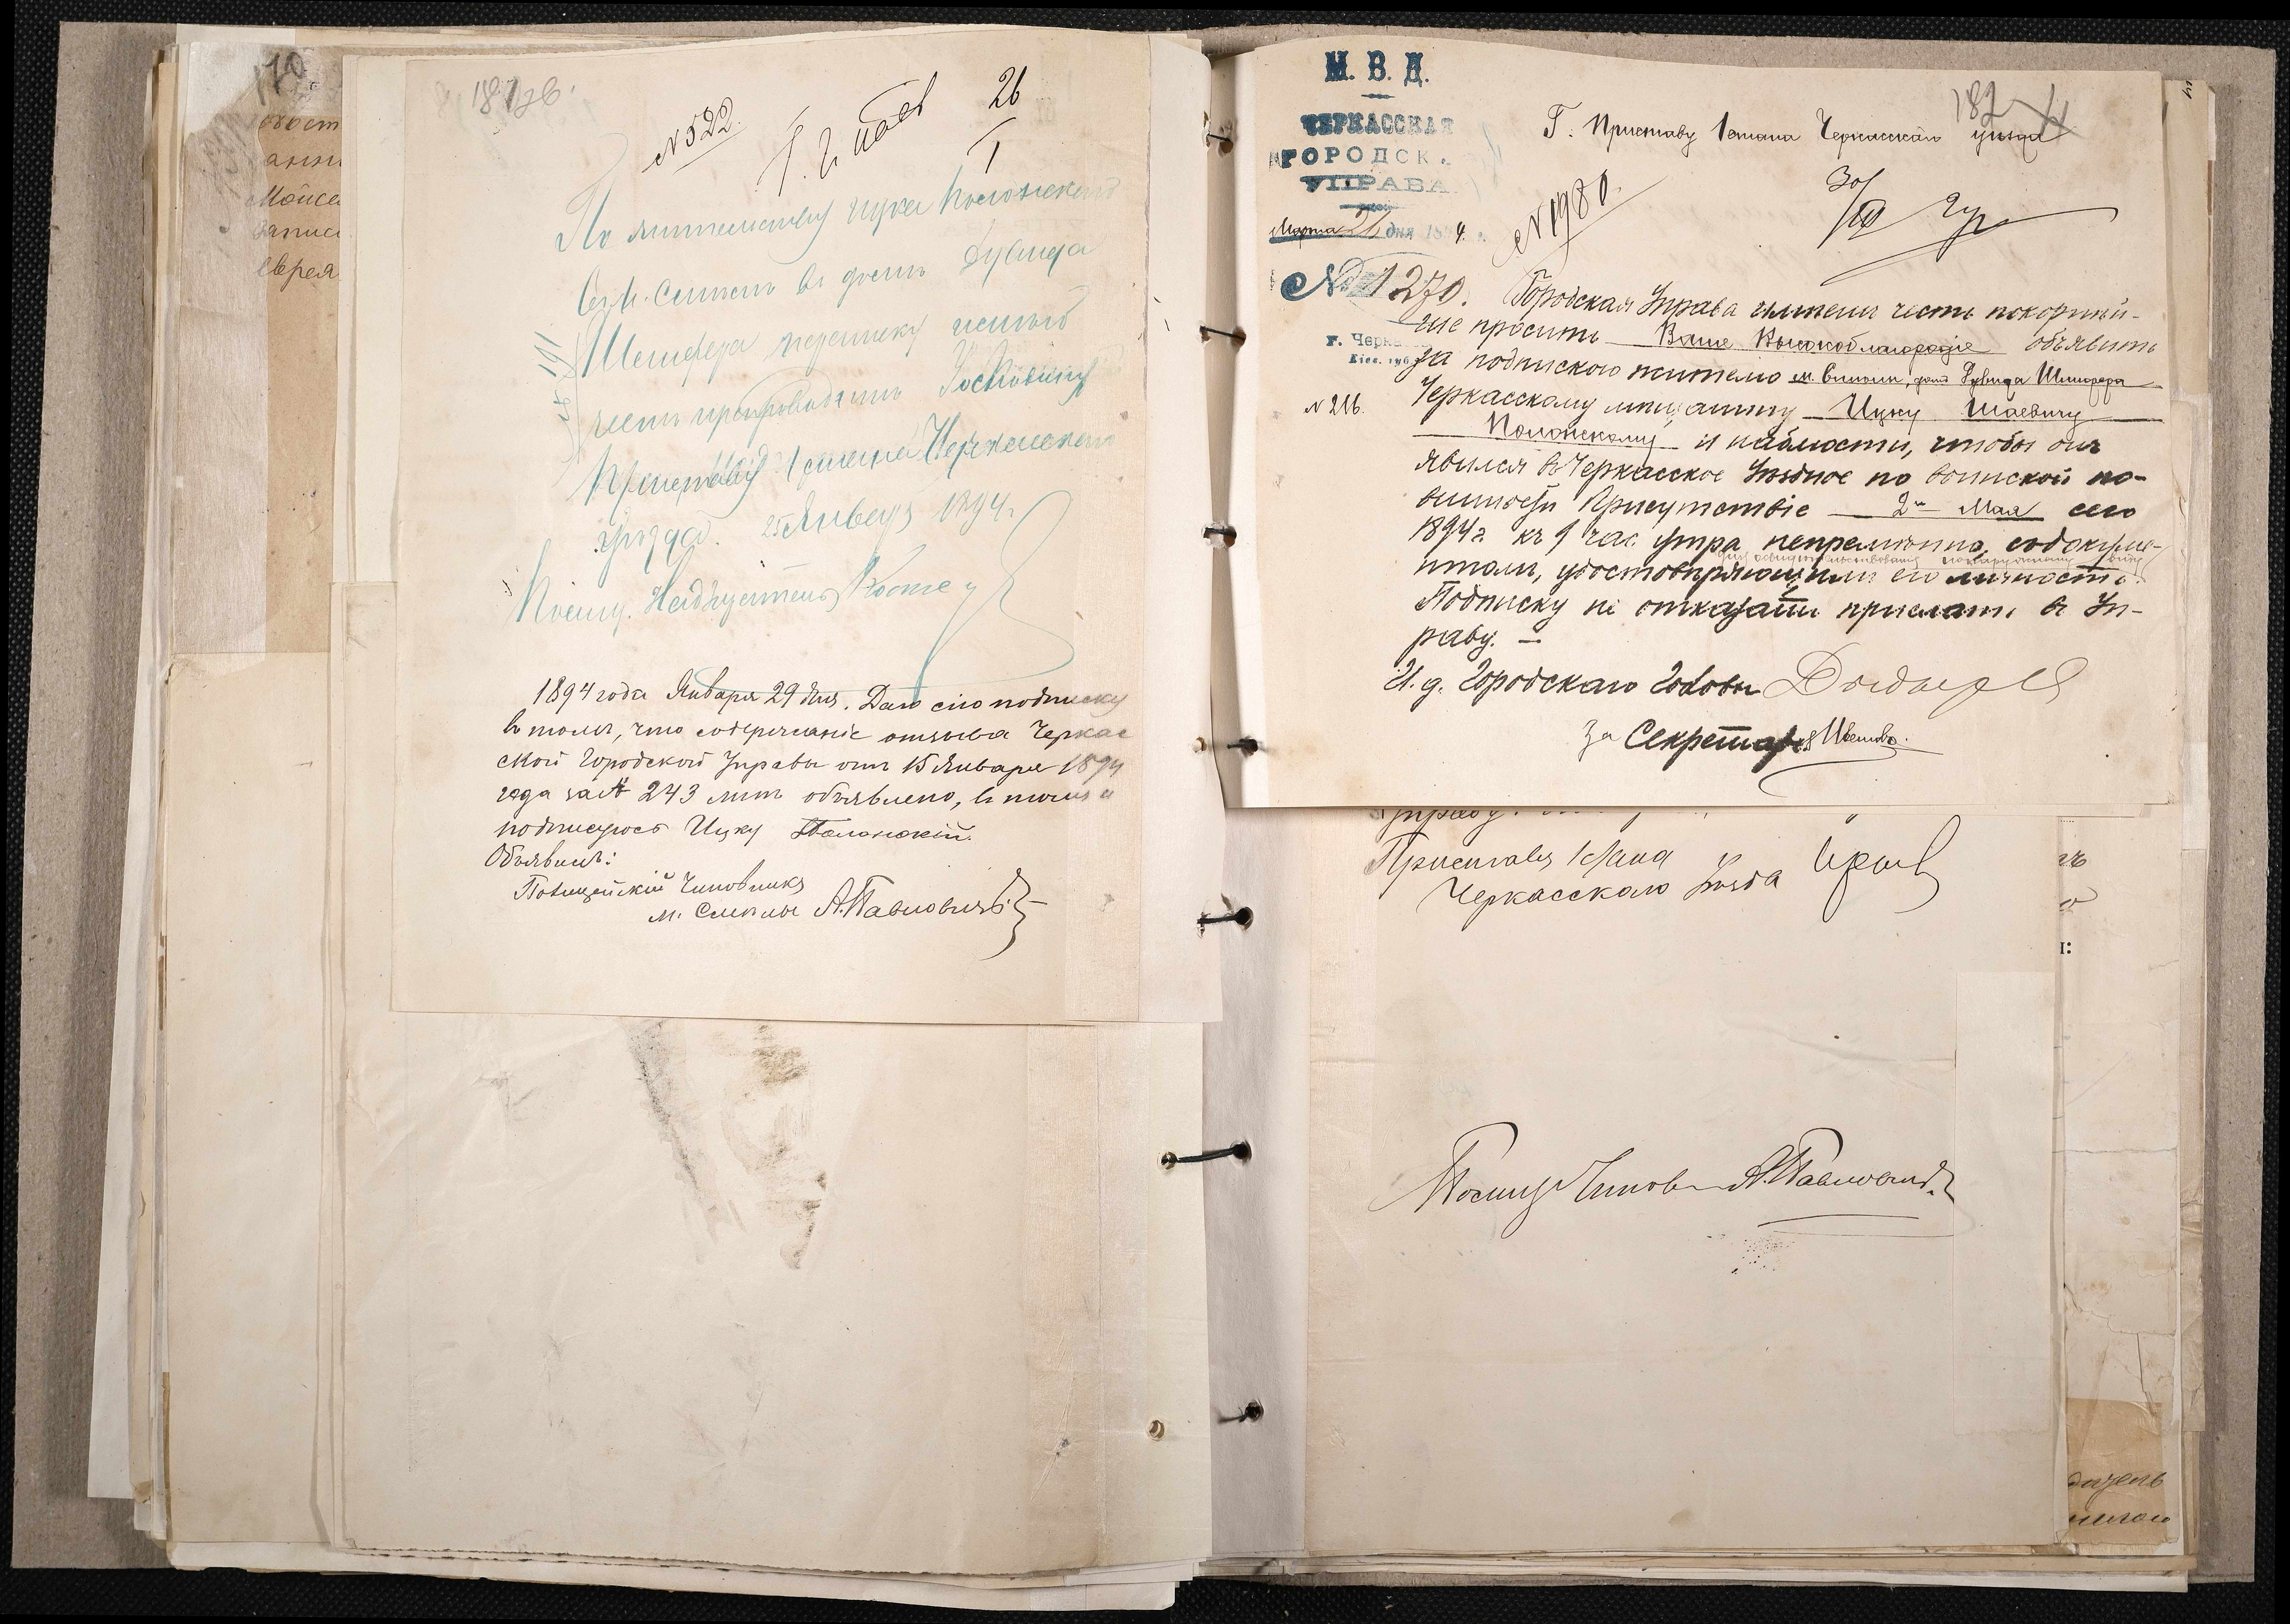 170
181 об.
№ 522.
26
I
По жительству Ицка Полонскаго
въ м. Смела въ домъ Дувида
Шенфера переписку имѣю
честь препроводить Господину
Приставу 1 стана Черкасскаго
уѣзда. 25 Января 1894 г.
Полиц. Надзиратель
1894 года Января 29 дня. Даю сію подписку
въ томъ, что содержаніе отзыва Черкас
ской Городской Управы отъ 15 Января 1894
года за № 243 мнѣ объявлено, въ томъ и
подписуюсь Ицко Полонскій.
Объявилъ:
Полицейскій Чиновникъ
м. Смѣлы А. Павловичъ
М. В. Д.
ЧЕРКАССКАЯ
ГОРОДСК.
УПРАВА
Марта 21 дня 1894.
№ 1270.
г. Черк
Кіев. губ.
№ 216.
182
Г. Приставу 1 стана Черкасскаго уѣзда
№ 1980.
30/III
Городская Управа имѣетъ честь покорнѣй-
ше просить Ваше Высокоблагородіе объявить
за подпискою жителю м. Смѣлы, домъ Дувида Шенфера
Черкасскому мѣщанину Ицку Шаевичу
Полонскому и наблюсти, чтобы онъ
явился въ Черкасское Уѣздное по воинской по-
винности Присутствіе 2го Мая сего
1894 г. къ 9 час. утра непремѣнно, съ докуме-
нтами, удостовѣряющими его личность.
Подписку не отказать прислать въ Уп-
раву. —
И. д. Городскаго Головы
За Секретаря
Управу.
Приставъ 1 стана
Черкасскаго Уѣзда
Полиц. Чинов. А. Павловичъ